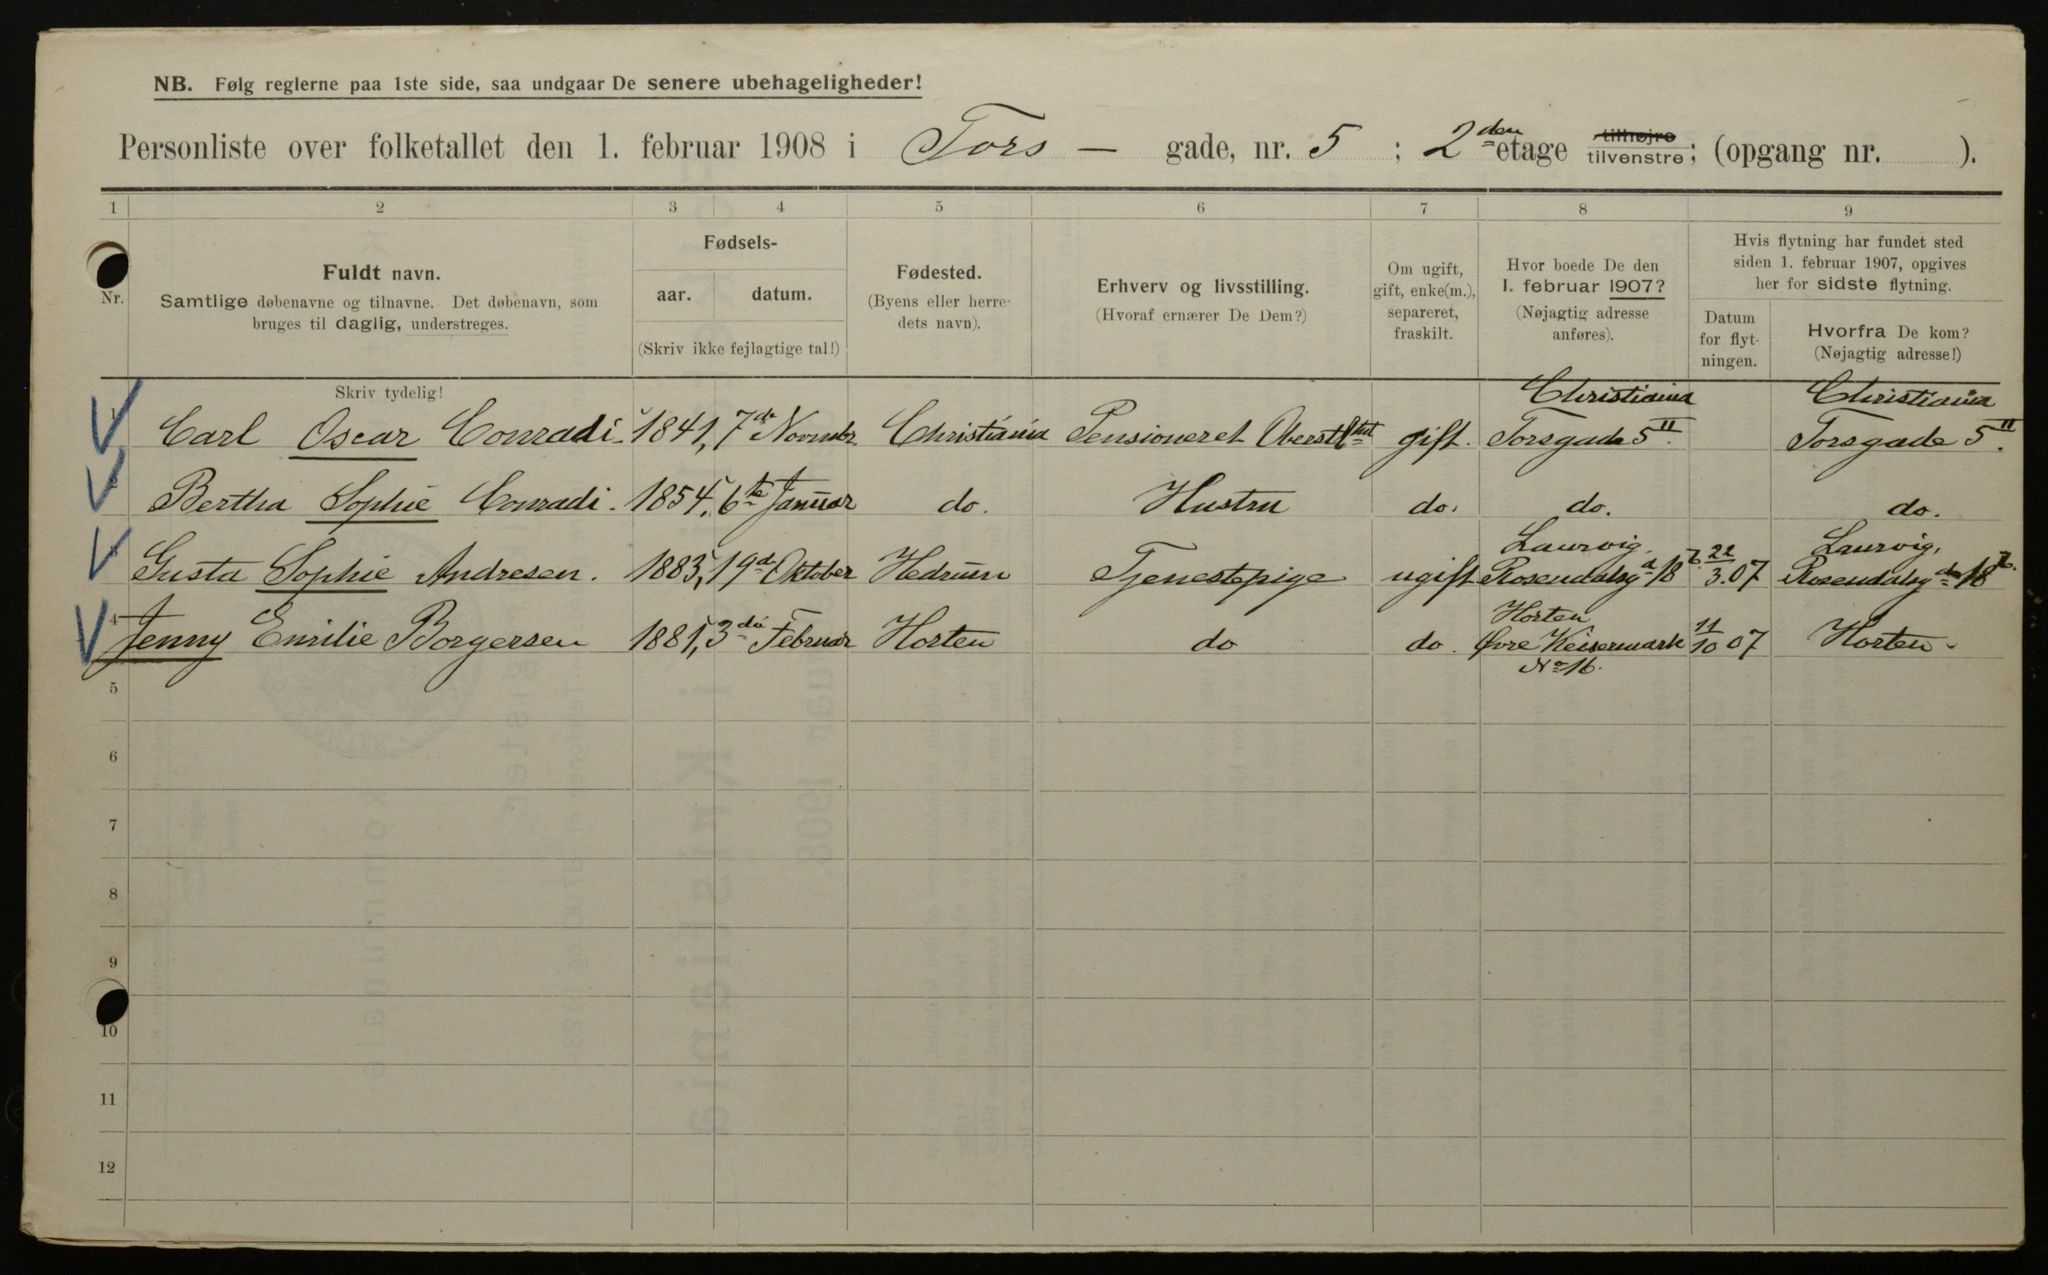 NB. Følg reglerne paa 1ste side, saa undgaar De senere ubehageligheder!
Personliste over folketallet den 1. februar 1908 i Tors — gade, nr. 5 ; 2den etage tilhøjre tilvenstre; (opgang nr. ).
1 2 3 4 5 6 7 8 9
Nr.
Fuldt navn.
Samtlige døbenavne og tilnavne. Det døbenavn, som
bruges til daglig, understreges.
Fødsels-
aar. datum.
(Skriv ikke fejlagtige tal!)
Fødested.
(Byens eller herre-
dets navn).
Erhverv og livsstilling.
(Hvoraf ernærer De Dem?)
Om ugift,
gift, enke(m.),
separeret,
fraskilt.
Hvor boede De den
1. februar 1907?
(Nøjagtig adresse
anføres).
Hvis flytning har fundet sted
siden 1. februar 1907, opgives
her for sidste flytning.
Datum
for flyt-
ningen.
Hvorfra De kom?
(Nøjagtig adresse!)
Skriv tydelig!
1 Carl Oscar Conradi. 1841, 7de Novmbr. Christiania Pensioneret Oberstltnt gift. Christiania Torsgade 5 II. Christiania Torsgade 5 II.
2 Bertha Sophie Conradi. 1854, 6te Januar do. Hustru do. do. do.
3 Gusta Sophie Andresen. 1883, 19d Oktober Hedrum Tjenestepige ugift Laurvig. Rosendalsgd 18 b. 22/3.07 Laurvig, Rosendalsgd 18 b.
4 Jenny Emilie Borgersen 1881, 3die Februar Horten do do. Horten Øvre Keisermark No 16. 11/10 07 Horten.
5
6
7
8
9
10
11
12